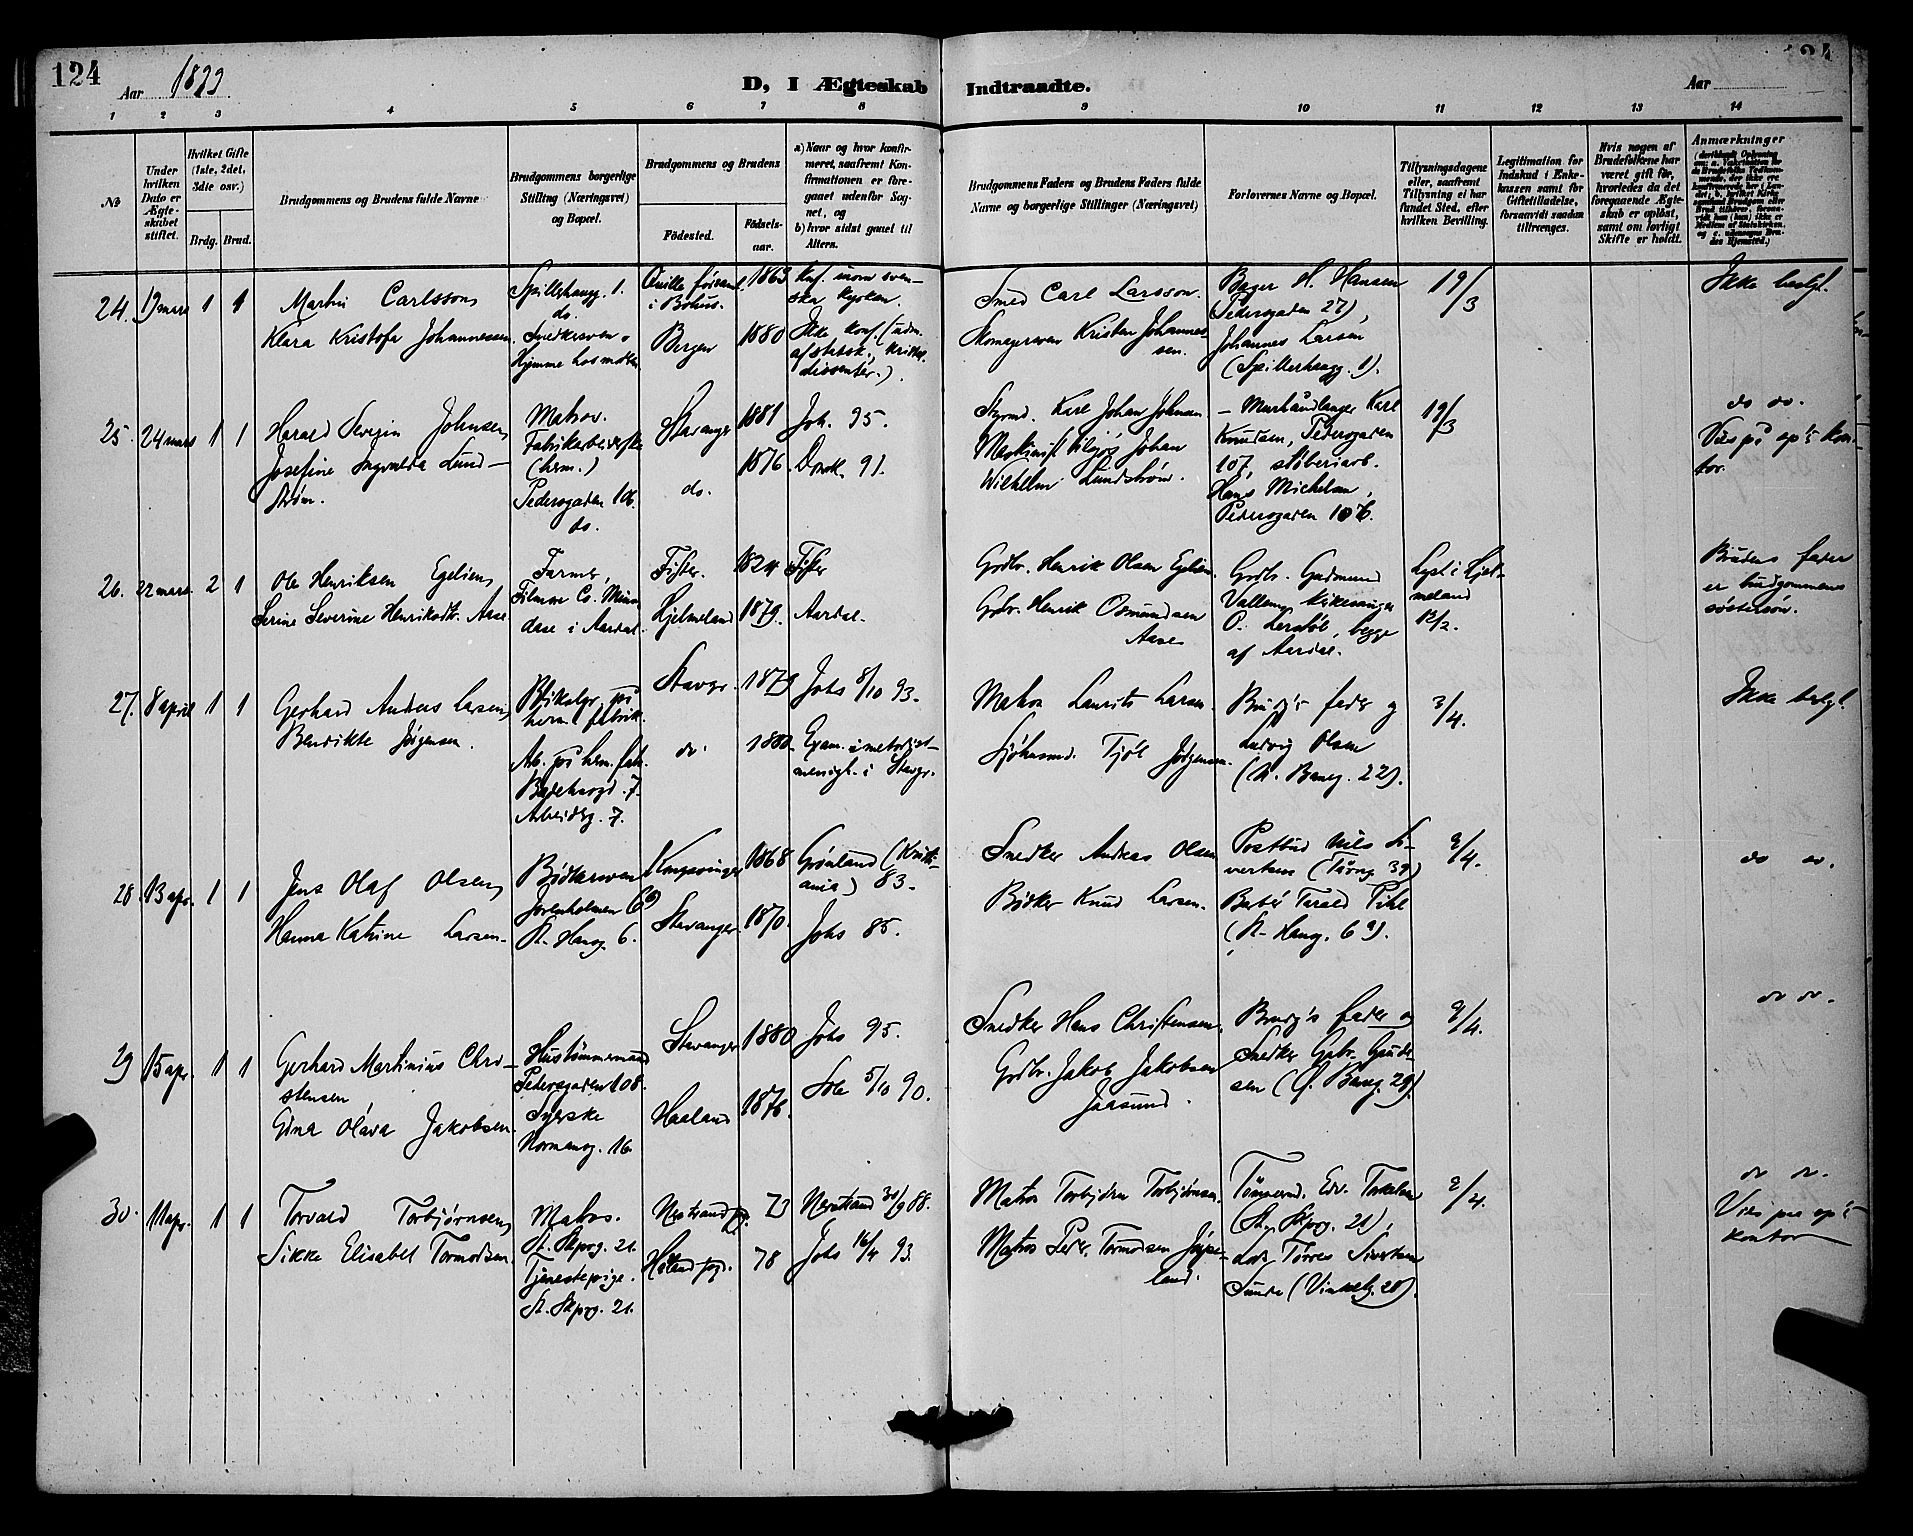 124
Aar 1899
D, I Ægteskab Indtraadte.
Aar
1 2 3 4 5 6 7 8 9 10 11 12 13 14
No
Under hvilken Dato er Ægteskabet stiftet.
Hvilket Gifte (1ste, 2det, 3die osv.)
Brdg. Brud.
Brudgommens og Brudens fulde Navne
Brudgommens borgerlige Stilling (Næringsvei) og Bopæl.
Brudgommens og Brudens
Födested.
Födselsaar.
a) Naar og hvor konfirmeret, saafremt Konfirmationen er foregaaet udenfor Sognet, og
b) hvor sidst gaaet til Alters.
Brudgommens Faders og Brudens Faders fulde Navne og borgerlige Stillinger (Næringsvei)
Forlovernes Navne og Bopæl.
Tillysningsdagene eller, saafremt Tillysning ei har fundet Sted, efter hvilken Bevilling.
Legitimation for Indskud i Enkekassen samt for Giftetilladelse, forsaavidt saadan tiltrænges.
Hvis nogen af Brudefolkene har været gift før, hvorledes da det foregaaende Ægteskab er opløst, samt om lovligt Skifte er holdt.
Anmærkninger
24. 19 mars 1 1
Martin Carlsson,
Klara Kristofa Johannessen
Spillehaugg. 1.
do.
Snedkersven
Hjemme hos modren
i Bohus. 1863
Bergen 1880
Konf. inom svenska kyrkan.
Ikke konf. (udm. af statsk., dissenter.).
Smed Carl Larsson.
Skomagersven Kristen Johannessen.
Bager H. Hansen
(Pedersgaden 27),
Johannes Larsen
(Spillerhaugg. 1).
19/3
Ikke beslgt.
25. 24 mars 1 1
Harald Severin Johnsen,
Josefine Ingvalda Lundström.
Matros.
Fabrikarbeiderske
(herm.)
Pedersgaden 106.
do.
Stavanger 1881 Joh. 95.
do. 1876 Domk. 91.
Styrmd. Karl Johan Johnsen
Maskinist Johan
Wilhelm Lundström.
Murhåndlanger Karl
Knudsen, Pedersgaden
107, støberiarb.
Hans Michelsen,
Pedersgaden 106.
19/3
do do.
Vies på op's kontor.
26. 22 mars 2 1
Ole Henriksen Egelien,
Serine Severine Henriksdtr. Aase
Farmer,
Filmore Co. Minn.
dase i Aardal.
Fister. 1824 Fister
Hjelmeland 1879. Aardal.
Grdbr. Henrik Olsen Egelien.
Grdbr. Henrik Osmundsen
Aase
Grdbr. Gudmund
Valleme, kirkesanger
O. Lerstöl, begge
af Aardal.
Lyst i Hjelmeland
12/2.
Brudens fader
er brudgommens
søstersøn.
27. 8 april 1 1
Gerhard Andreas Larsen,
Bendikte Jørgensen.
på
herm. fabrik.
Arb. på herm. fabr.
Badehusgd. 7.
Arbeidsg. 7.
Stavgr. 1879 Johs 8/10 93.
do. 1880. Exam. i metodistmenigh. i Stavgr.
Matros Laurits Larsen.
Sjömand. Tjöl Jørgensen.
Brudg's fader og
Ludvig Olsen
(N. Baneg. 22).
3/4.
Ikke beslgt.
28. 13 apr. 1 1
Jens Olaf Olsen,
Hanna Katrine Larsen.
Bødkersvend
Jorenholmen 6 9
St. Hansg. 6.
Kongsvinger 1868 Grønland (Kristiania) 83.
Stavanger. 1870. Johs 85.
Snedker Andreas Olsen
Bødker Knud Larsen.
Postbud Nils Sivertsen (Tårng. 39)
Barbér Tarald Pihl
(St. Hansg. 6 9).
9/4.
do do.
29 15 apr. 1 1
Gerhard Martinius Christensen,
Gina Olava Jakobsen.
Hustømmermand
Pedersgaden 108.
Syerske
Normansg. 16.
Stavanger 1880 Johs 95.
Haaland 1876. Sole 5/10 90.
Snedker Hans Christensen.
Grdbr. Jakob Jakobsen
Jaasund.
Brudg's fader og
Snedker Gabr. Gundersen (Ö. Baneg. 29).
9/4.
do do.
30. 11 apr. 1 1
Torvald Torbjørnsen,
Sikke Elisabet Tormodsen.
Matros.
St. Skpog. 21.
Tjenestepige.
St. Skpog. 21.
Nerstrand pg. 73 Nerstrand 30/9 88.
Håland pgd. 78 Johs 16/4 93.
Matros Torbjörn Torbjörnsen.
Matros Peder Tormodsen Jøpeland.
Tömmermd. Edv. Torkelsen
(St. Skpog. 21),
Lods Törres Sivertsen
Sunde (Vinkelg. 20).
9/4.
do do.
Vies paa op's
kontor